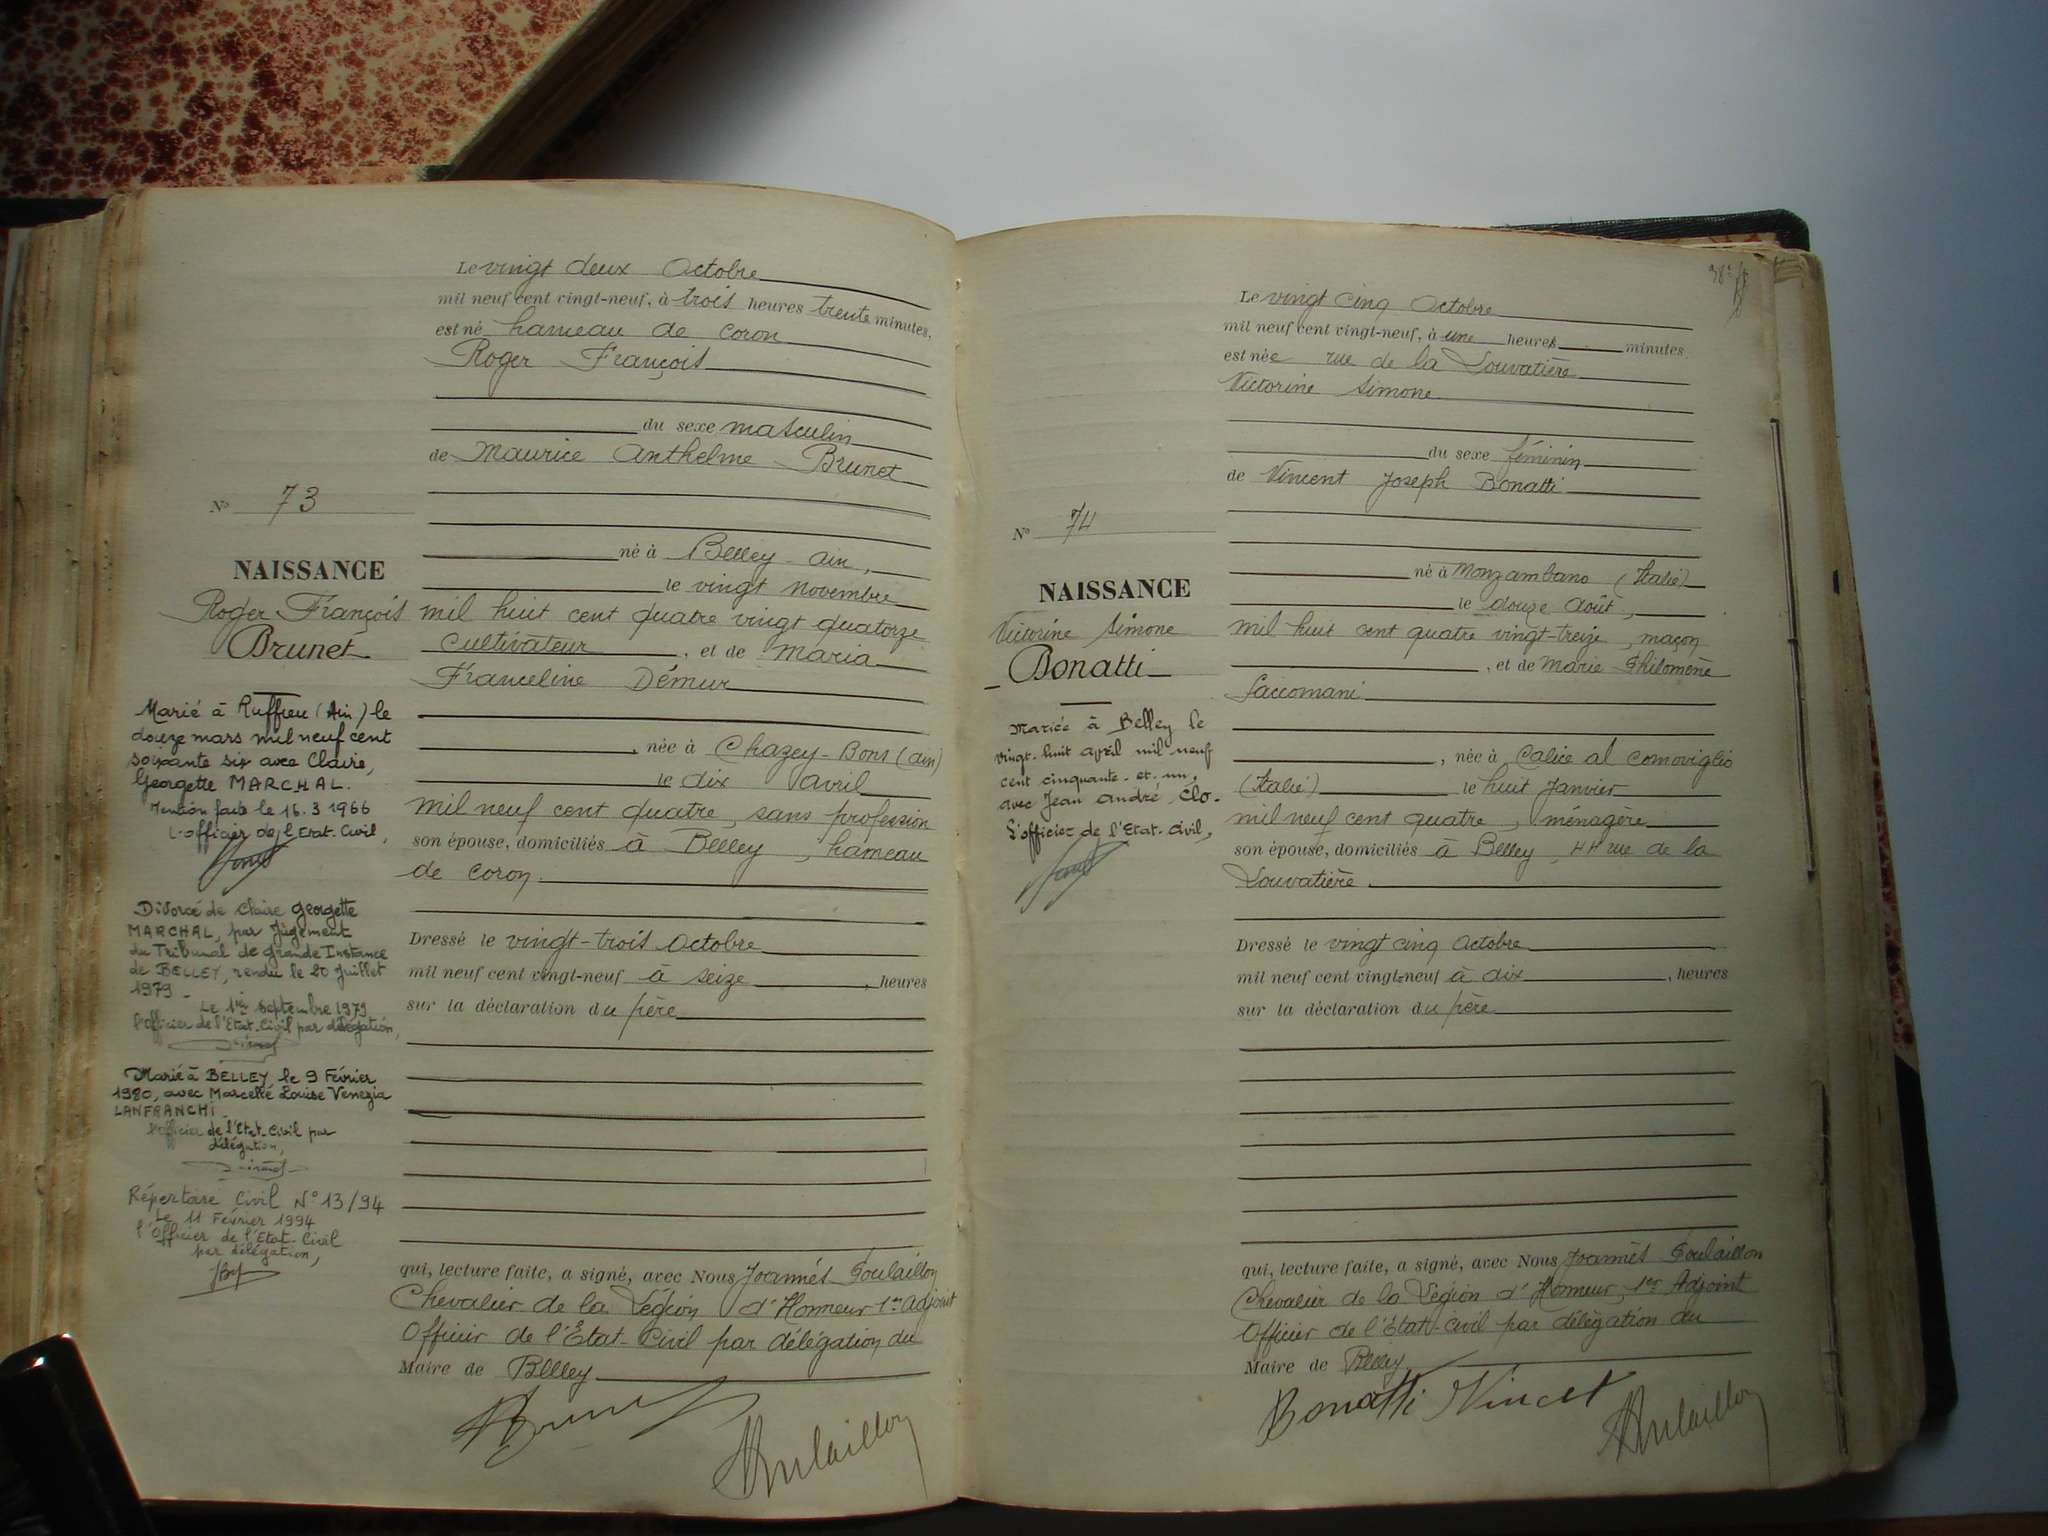 Le vingt deux Octobre
mil neuf cent vingt-neuf, à trois heures trente minutes,
est né hameau de coron
Roger François
du sexe masculin
de Maurice Anthelme Brunet
né à Belley - ain,
le vingt novembre
mil huit cent quatre vingt quatorze
cultivateur, et de Maria
Franceline Démur
, née à Chazey-Bons (ain)
le dix avril
mil neuf cent quatre, sans profession
son épouse, domiciliés à Belley, hameau
de coron.
Dressé le vingt-trois Octobre
mil neuf cent vingt-neuf à seize, heures
sur la déclaration du père
qui, lecture faite, a signé, avec Nous Joannès Poulaillon
Chevalier de la Légion d'Honneur 1er Adjoint
Officier de l'État-Civil par délégation du
Maire de Belley
No 73
NAISSANCE
Roger François
Brunet
Marié à Ruffieu (Ain) le
douze mars mil neuf cent
soixante six avec Claire,
Georgette MARCHAL.
Mention faite le 16.3 1966
L'officier de l'Etat-Civil,
Divorcé de Claire Georgette
MARCHAL, par Jugement
du Tribunal de Grande Instance
de BELLEY, rendu le 20 Juillet
1979 -
Le 1er septembre 1979
l'Officier de l'Etat-Civil par délégation,
Marié à BELLEY, le 9 Février
1980, avec Marcelle Louise Venezia
LANFRANCHI -
l'Officier de l'Etat-Civil par
délégation,
Répertoire Civil N° 13/94
Le 11 Février 1994
l'Officier de l'Etat-Civil
par délégation,
38e
Le vingt cinq Octobre
mil neuf cent vingt-neuf, à une heure minutes
est née rue de la Louvatière
Victorine Simone
du sexe féminin
de Vincent Joseph Bonatti
né à Monzambano (Italie)
le douze août,
mil huit cent quatre vingt-treize, maçon
, et de Marie Philomène
Saccomani
, née à Calice al cornoviglio
(Italie) le huit Janvier
mil neuf cent quatre, ménagère
son épouse, domiciliés à Belley, 44 rue de la
Louvatière.
Dressé le vingt cinq Octobre
mil neuf cent vingt-neuf à dix, heures
sur la déclaration du père
qui, lecture faite, a signé, avec Nous Joannès Poulaillon
Chevalier de la Légion d'Honneur, 1er Adjoint
Officier de l'État-civil par délégation du
Maire de Belley
Bonatti Vincet
Poulaillon
No 74
NAISSANCE
Victorine Simone
Bonatti
Mariée à Belley le
vingt-huit avril mil neuf
cent cinquante-et-un,
avec Jean André Clo.
L'officier de l'Etat-Civil,